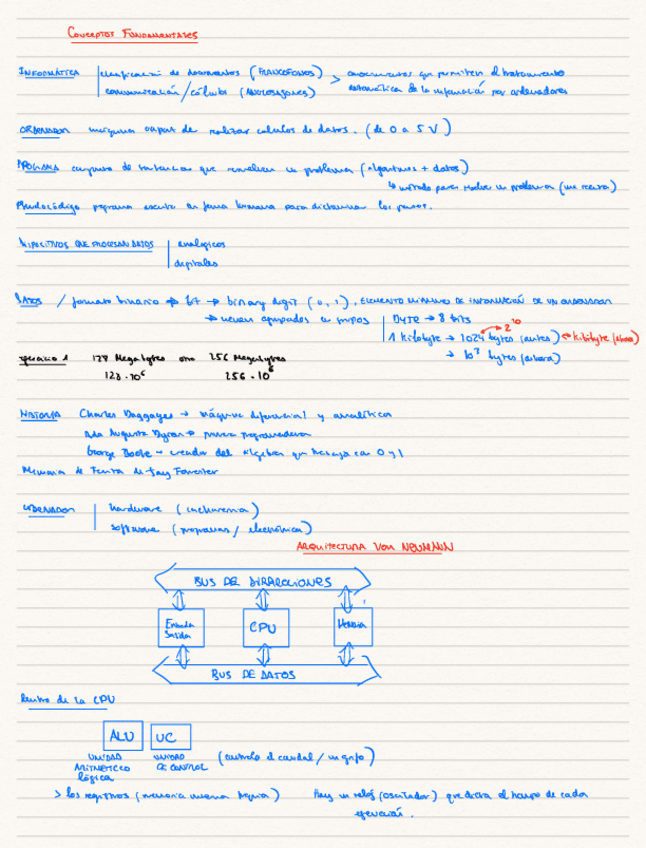 Conceptos Fundamentales
INFORMÁTICA | clasificación de documentos (FRANCÓFONOS) > conocimientos que permiten el tratamiento
comunicación/cálculos (ANGLOSAJONES) automático de la información por ordenadores
ORDENADOR máquina capaz de realizar calculos de datos. (de 0 a 5 V)
PROGRAMA conjunto de sentencias que resuelven un problema (algoritmos + datos)
↳ método para resolver un problema (una receta)
Pseudocódigo programa escrito en forma humana para dictaminar los pasos.
DISPOSITIVOS QUE PROCESAN DATOS | analógicos
digitales
DATOS / formato binario → bit → binary digit (0, 1), ELEMENTO MÍNIMO DE INFORMACIÓN DE UN ORDENADOR
→ agrupados en grupos | BYTE → 8 bits
1 kilobyte → 1024 bytes (antes) ← kibibyte (ahora)
2^10
→ 10³ bytes (ahora)
ejercicio 1 128 Megabytes 256 Megabytes
128·10⁶ 256·10⁶
HISTORIA Charles Baggages → máquina diferencial y analítica
Ada Augusta Byron → primera programadora
George Boole → creador del algebra que trabaja con 0 y 1
Memoria de Ferrita de Jay Forrester
ORDENADOR | hardware (cacharrería)
software (programas / electrónica)
ARQUITECTURA VON NEUMANN
BUS DE DIRACCIONES
Entrada Salida
CPU
Memoria
BUS DE DATOS
Dentro de la CPU
ALU UC
UNIDAD ARITMETICO lógica
UNIDAD DE CONTROL (controla el caudal / un grifo)
> los registros (memoria interna propia) Hay un reloj (oscilador) que dicta el tiempo de cada
ejecución.